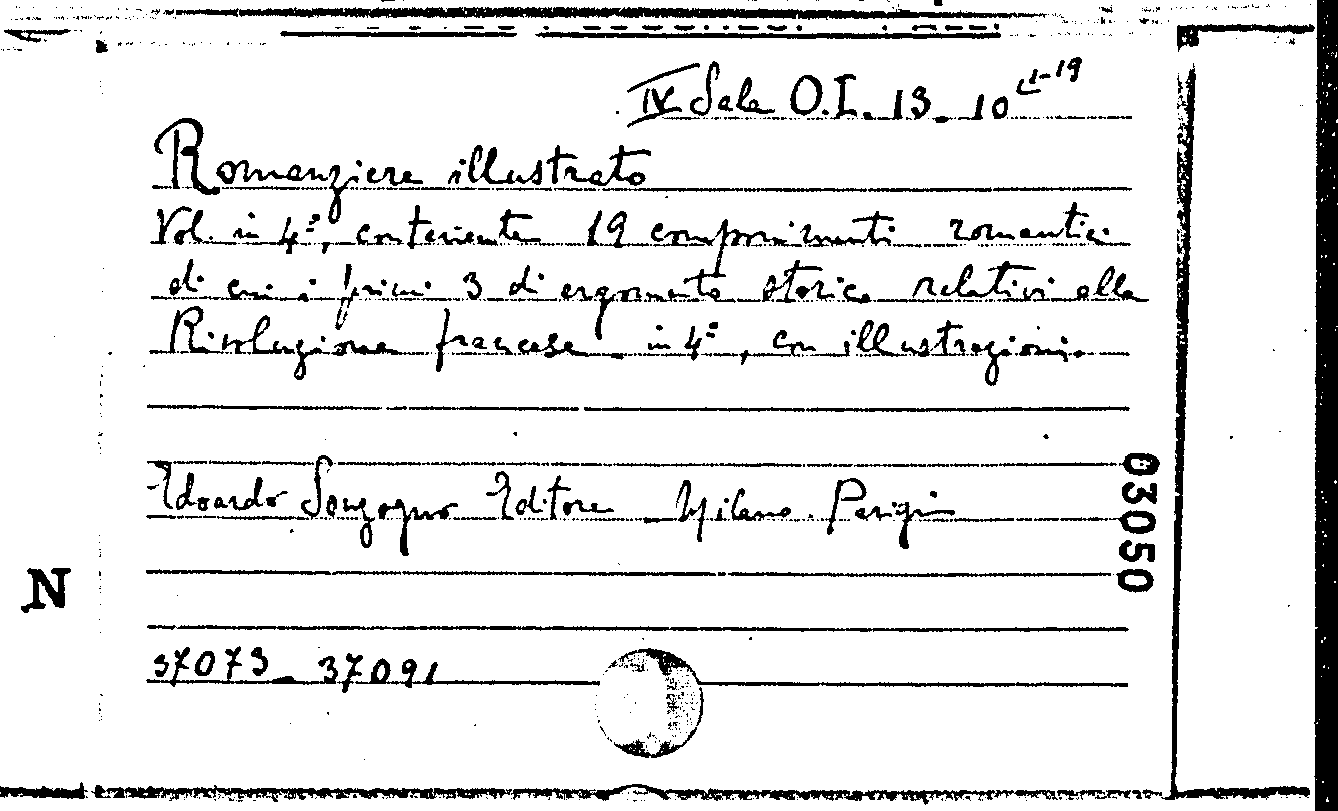 IV Sala O.I. 13_10 (1-19
Romanziere illustrato
Vol. in 4º, contenente 19 componimenti romantici
di cui i primi 3 di argomento storico relativi alla
Rivoluzione francese _ in 4º, con illustrazioni.
Edoardo Sonzogno Editore _ Milano. Parigi
03050
N
37073_ 37091